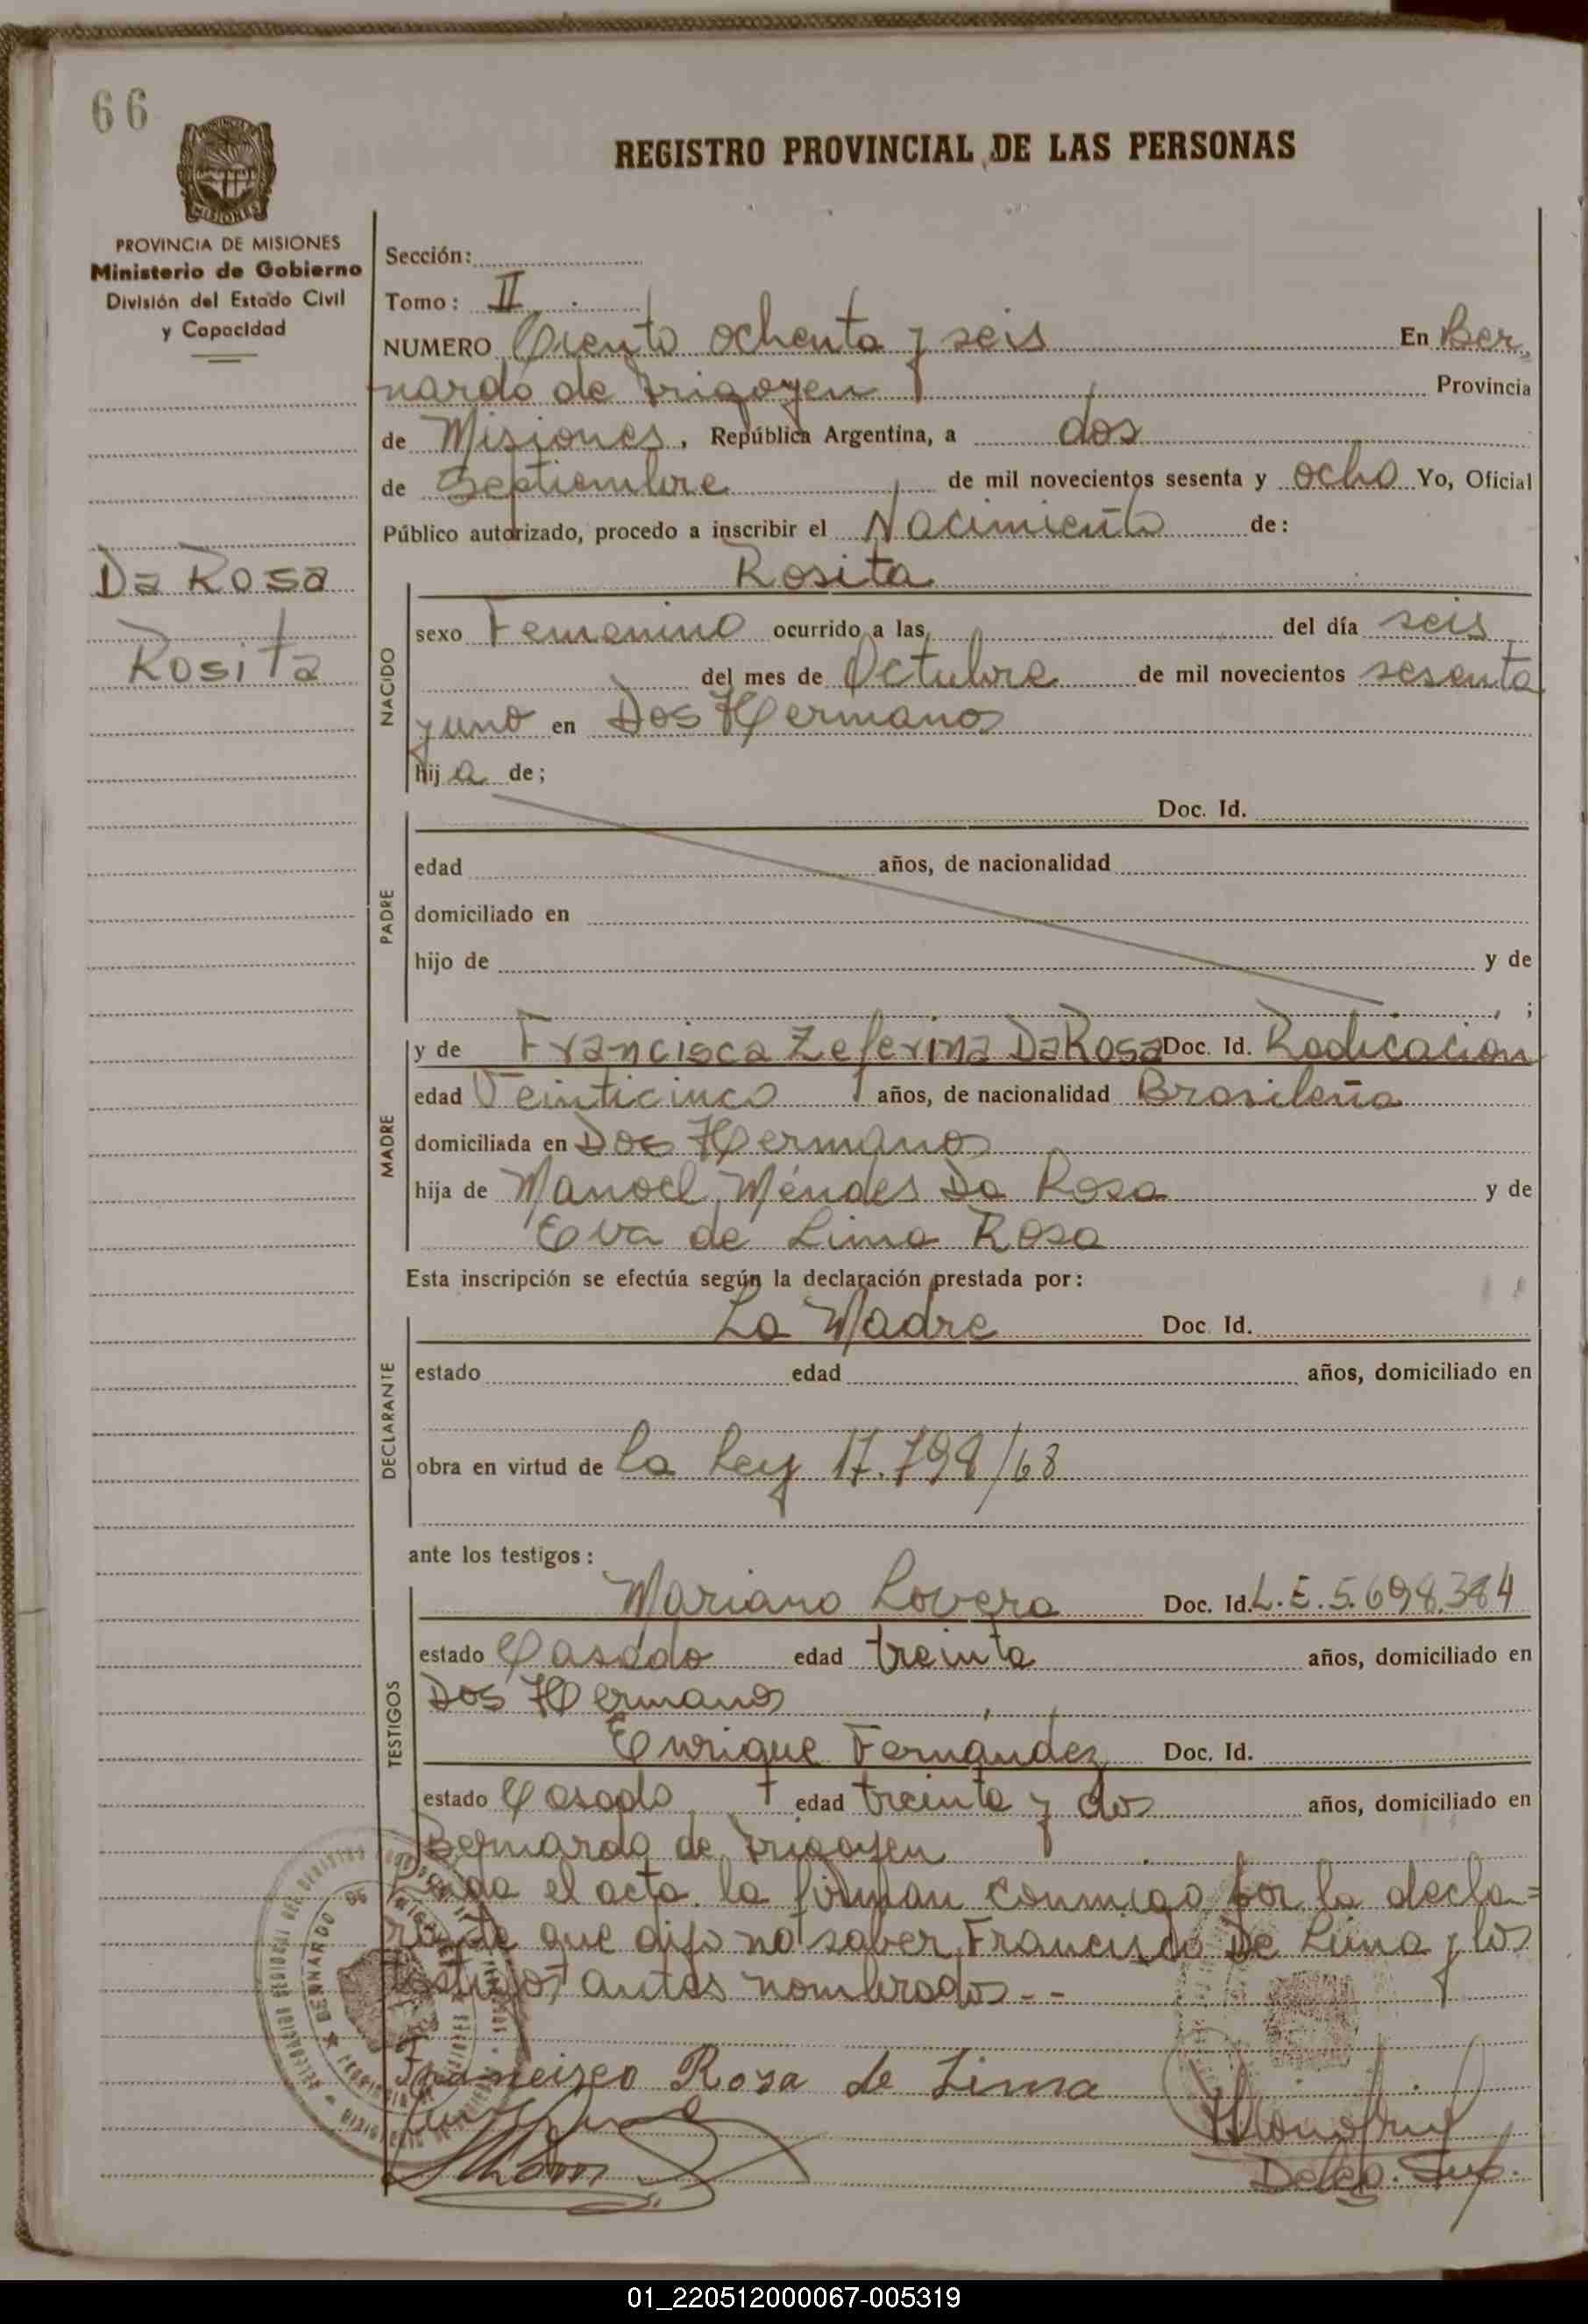 66
MISIONES
REGISTRO PROVINCIAL DE LAS PERSONAS
PROVINCIA DE MISIONES
Ministerio de Gobierno
División del Estado Civil
y Capacidad
Da Rosa
Rosita
Sección:
Tomo: II
NUMERO Ciento ochenta y seis En Ber
nardo de Irigoyen Provincia
de Misiones, República Argentina, a dos
de Septiembre de mil novecientos sesenta y ocho Yo, Oficial
Público autorizado, procedo a inscribir el Nacimiento de:
Rosita
NACIDO
sexo Femenino ocurrido a las, del día seis
del mes de Octubre de mil novecientos sesenta
y uno en Dos Hermanos
hija de;
PADRE
Doc. Id.
edad años, de nacionalidad
domiciliado en
hijo de y de
;
MADRE
y de Francisca Zeferina Da Rosa Doc. Id. Radicacion
edad Veinticinco años, de nacionalidad Brasileña
domiciliada en Dos Hermanos
hija de Manoel Méndes Da Rosa y de
Eva de Lima Rosa
Esta inscripción se efectúa según la declaración prestada por:
DECLARANTE
La Madre Doc. Id.
estado edad años, domiciliado en
obra en virtud de la Ley 17.798/68
ante los testigos:
TESTIGOS
Mariano Lovera Doc. Id. L.E. 5.698.384
estado Casado edad treinta años, domiciliado en
Dos Hermanos
Enrique Fernandez Doc. Id.
estado Casado edad treinta y dos años, domiciliado en
Bernardo de Irigoyen
Leida el acta la firman conmigo por la decla=
rante que dijo no saber, Francisco De Lima y los
testigos antes nombrados--
Francisco Rosa de Lima
Deleg. Sup.
BERNARDO DE
01_220512000067-005319